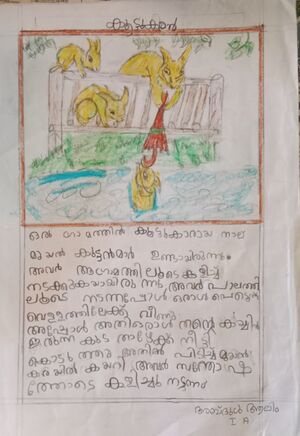 കൂട്ടുകാരൻ
ഒരു ഗ്രാമത്തിൽ കൂട്ടുകാരായ നാല
മുയൽ കുട്ടൻമാർ ഉണ്ടായിരുന്നു.
അവർ ആഗ്രാമത്തിലൂടെ കളിച്ച്
നടക്കുകയായിരുന്നു അവർ പാലത്തി
ലൂടെ നടന്നപ്പോൾ ഒരാൾ പെട്ടെന്ന്
വെള്ളത്തിലേക്ക് വീണു
അപ്പോൾ അതിലൊരാൾ തന്റെ കയ്യിൽ
ഉണ്ടായിരുന്ന കുട താഴേക്കു നീട്ടി
കൊടുത്തു അതിൽ പിടിച്ച് മുയൽ
കരയിൽ കയറി അവർ സന്തോഷ
ത്തോടെ കളിച്ചു നടന്നു
അബ്ദുൾ ആലിം
I A